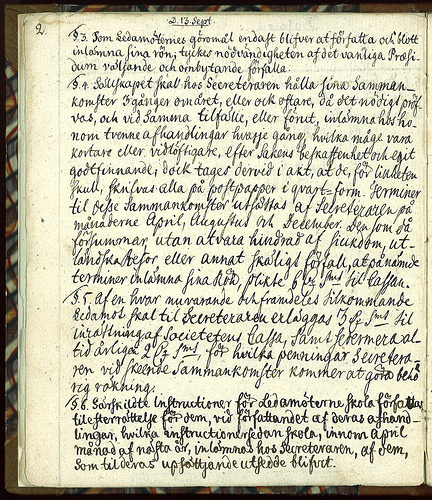 2.
D. 13. Sept.
§. 3. Som Ledamöternes göromål endast blifver at författa och blott
inlämna sina rön; tyckes nödvändigheten af det vanliga Præsi-
dium väljande och ombytande förfalla.
§. 4. Sällskapet skal hos Secreteraren hålla sina Samman-
komster 3 gånger om året, eller ock oftare, då det nödigt pröf-
vas, och vid samma tilfälle, eller förut, inlämna hos ho-
nom tvenne afhandlingar hvarje gång, hvilka måge vara
kortare eller vidlöftigare, efter sakens beskaffenhet och egit
godtfinnande; dock tages dervid i akt, at de, för likheten
skull, skrifvas alla på postpapper i qvart-form. Terminer
til desse sammankomster utsättas af Secreteraren på
månaderne April, Augustus och December. Den som då
försummar, utan at vara hindrad af siukdom, ut-
ländska resor eller annat skäligt förfall, at på nämde
terminer inlämna sina Rön, plikte 6 Smt til Cassan.
§. 5. Af en hvar nuvarande och framdeles tilkommande
Ledamot skal til Secreteraren erläggas 3 Smt til
inrättning af Societetens Cassa, samt sedermera al-
tid årliga 2 Smt, för hvilka penningar Secretera-
ren vid skeende Sammankomster kommer at göra behö
rig räkning.
§. 6. Särskildte Instructioner för Ledamöterne skola författas
til efterrättelse för dem, vid författandet af deras afhand-
lingar, hvilka instructioner sedan skola, innom April
månad af nästa år, inlämnas hos Secreteraren, af dem,
som til deras upsättjande utsedde blifvit.